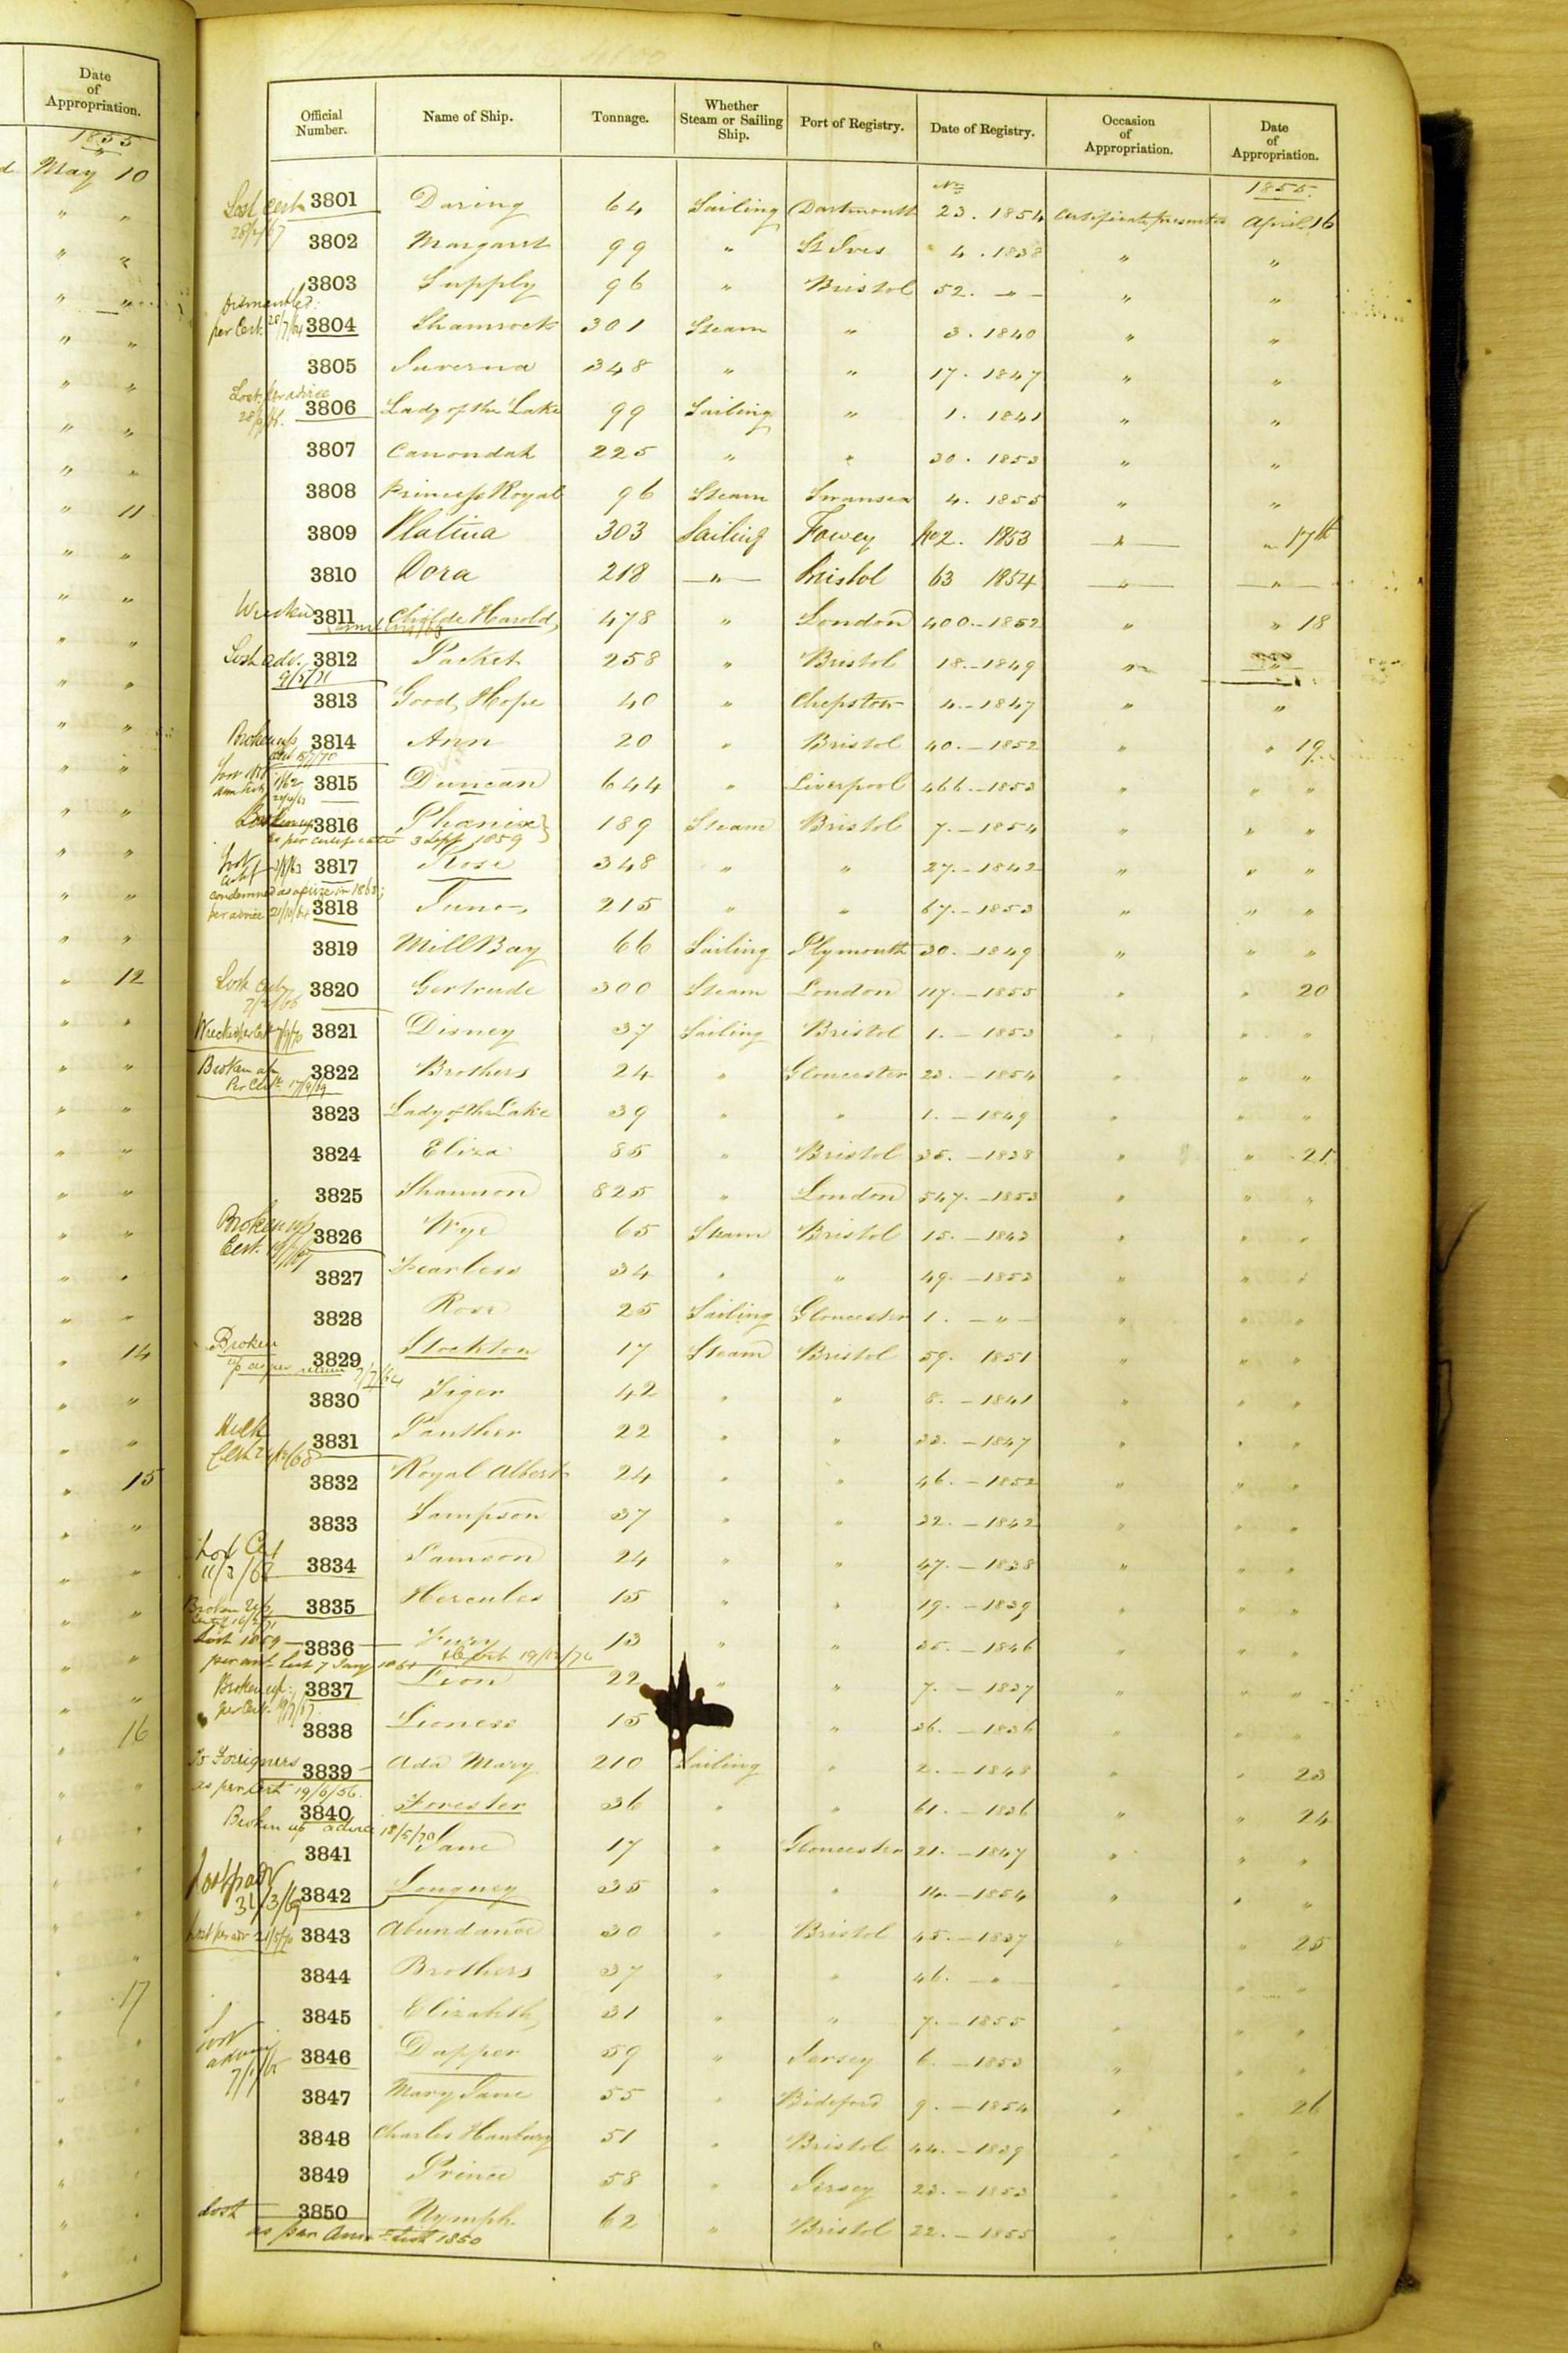 Date
of
Appropriation.
1855
May 10
" "
" "
" "
" "
" "
" "
" "
" 11
" "
" "
" "
" "
" "
" "
" "
" "
" "
" "
" 12
" "
" "
" "
" "
" "
" "
" "
" "
" 14
" "
" "
" 15
" "
" "
" "
" "
" "
" 16
" "
" "
" "
" "
" "
" 17
Official Number. Name of Ship. Tonnage. Whether Steam or Sailing Ship. Port of Registry. Date of Registry. Occasion of Appropriation. Date of Appropriation.
No 1855.
Lost Cert 3801 Daring 64 Sailing Dartmouth 23. 1854 Certificate presented April 16
3802 Margaret 99 " St Ives 4. 1838 " "
3803 Supply 96 " Bristol 52. - " - " "
Dismantled
per Cert. 28/7/64 3804 Shamrock 301 Steam " 3. 1840 " "
3805 Juverna 348 " " 17. 1847 " "
Lost. per advice
3806 Lady of the Lake 99 Sailing " 1. 1841 " "
3807 Canondah 225 " " 30. 1853 " "
3808 Princess Royal 96 Steam Swansea 4. 1855 " "
3809 Platina 303 Sailing Fowey No 2. 1853 " " 17th
3810 Dora 218 " Bristol 63 1854 " "
Wrecked 3811 Childe Harold 478 " London 400.-1852 " " 18
Lost adv. 3812 Packet 258 " Bristol 18.-1849 " "
9/5/71
3813 Good Hope 40 " Chepstow 4.-1847 " "
Broken up 3814 Ann 20 " Bristol 40.-1852 " " 19.
3815 Duncan 644 " Liverpool 466.-1853 " " "
Broken up 3816 Phœnix 189 Steam Bristol 7.-1854 " " "
as per certificate 3 Sepr 1859
Lost 3817 Rose 348 " " 27.-1842 " " "
condemned as a prize in 1863;
per advice 21/10/64 3818 Juno 215 " " 67.-1853 " " "
3819 Mill Bay 66 Sailing Plymouth 30.-1849 " " "
Lost Cert 3820 Gertrude 300 Steam London 117.-1855 " " 20
Wrecked per Cert 3821 Disney 37 Sailing Bristol 1.-1853 " " "
Broken up 3822 Brothers 24 " Gloucester 23.-1854 " " "
Per Certt 17/9/69
3823 Lady of the Lake 39 " " 1.-1849 " " "
3824 Eliza 85 " Bristol 35.-1838 " " 21
3825 Shannon 825 " London 547.-1853 " " "
Broken up 3826 Wye 65 Steam Bristol 15.-1843 " " "
Cert.
3827 Fearless 34 " " 49.-1853 " " "
3828 Rose 25 Sailing Gloucester 1. - " - " " "
Broken 3829 Stockton 17 Steam Bristol 59. 1851 " " "
up as per return 7/7/64
3830 Tiger 42 " " 8.-1841 " " "
Hulk 3831 Panther 22 " " 33.-1847 " " "
3832 Royal Albert 24 " " 46.-1852 " " "
3833 Sampson 37 " " 32.-1842 " " "
Lost Cert
3834 Samson 24 " " 47.-1838 " " "
Broken Up 3835 Hercules 15 " " 19.-1839 " " "
Lost 1859 - 3836 Fury 13 " " 35.-1846 " " "
per annl List 7 Jany
Broken up: 3837 Lion 22 " " 7.-1837 " " "
per Cert.
3838 Lioness 15 " 36.-1836 " " "
To Foreigners 3839 Ada Mary 210 Sailing " 2.-1848 " " 23
as per Cert 19/6/56.
3840 Forester 36 " " 61.-1836 " " 24
Broken up advice 18/5/70
3841 Jane 17 " Gloucester 21.-1847 " " "
Lost p adv
31/3/69 3842 Longney 35 " " 14.-1854 " " "
Lost per adv 21/5/70 3843 Abundance 30 " Bristol 45.-1837 " " 25
3844 Brothers 37 " " 46. - " - " " "
3845 Elizabeth 31 " " 7.-1855 " " "
Lost
advice 3846 Dapper 59 " Jersey 6.-1853 " " "
3847 Mary Jane 55 " Bideford 9.-1854 " " 26
3848 Charles Hanbury 51 " Bristol 44.-1839 " " "
3849 Prince 58 " Jersey 23.-1853 " " "
Lost 3850 Nymph 62 " Bristol 22.-1855 " " "
as per Annl List 1850